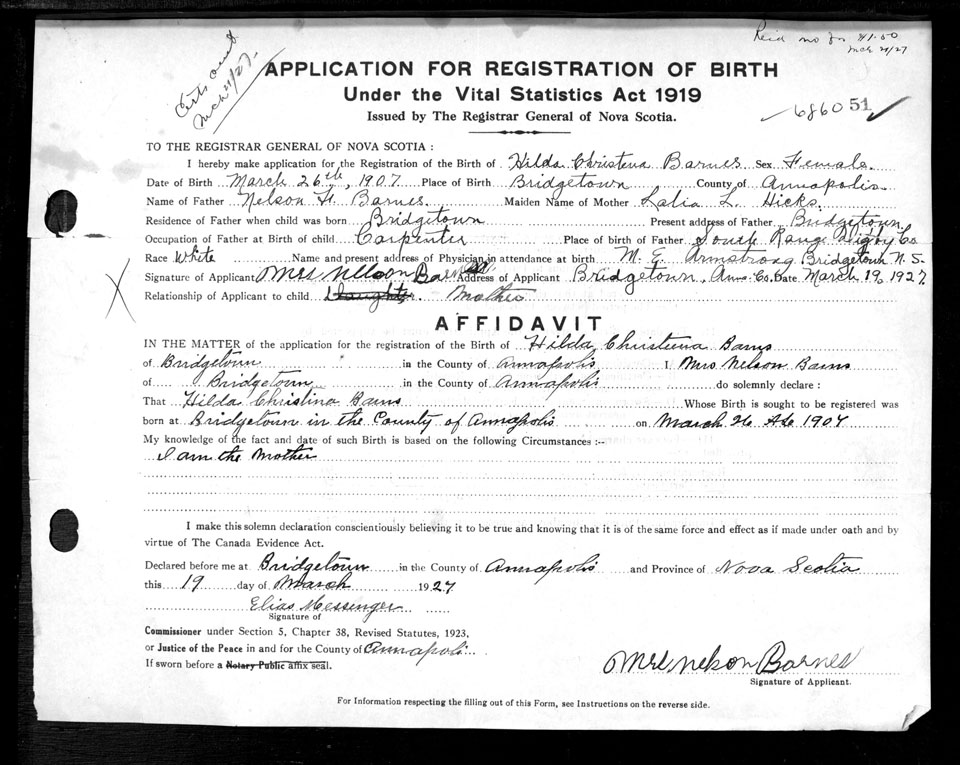 Certs out
Mch 21/27.
Recd no for $1.50
Mch 21/27
APPLICATION FOR REGISTRATION OF BIRTH
Under the Vital Statistics Act 1919
Issued by The Registrar General of Nova Scotia.
6860 51
TO THE REGISTRAR GENERAL OF NOVA SCOTIA :
I hereby make application for the Registration of the Birth of Hilda Christena Barnes Sex Female.
Date of Birth March 26th, 1907 Place of Birth Bridgetown County of Annapolis
Name of Father Nelson H. Barnes Maiden Name of Mother Lalia L. Hicks.
Residence of Father when child was born Bridgetown Present address of Father Bridgetown.
Occupation of Father at Birth of child Carpenter Place of birth of Father South Range Digby Co
Race White Name and present address of Physician in attendance at birth M. E. Armstrong Bridgetown N. S.
Signature of Applicant Mrs Nelson Barnes Address of Applicant Bridgetown, Ann. Co. Date March 19, 1927.
Relationship of Applicant to child Daughter. Mother
AFFIDAVIT
IN THE MATTER of the application for the registration of the Birth of Hilda Christeena Barns
of Bridgetown in the County of Annapolis I Mrs Nelson Barns
of Bridgetown in the County of Annapolis do solemnly declare :
That Hilda Christina Barns Whose Birth is sought to be registered was
born at Bridgetown in the County of Annapolis on March 26 AD 1907
My knowledge of the fact and date of such Birth is based on the following Circumstances :--
I am the Mother
I make this solemn declaration conscientiously believing it to be true and knowing that it is of the same force and effect as if made under oath and by
virtue of The Canada Evidence Act.
Declared before me at Bridgetown in the County of Annapolis and Province of Nova Scotia
this 19 day of March 1927
Elias Messenger
Signature of
Commissioner under Section 5, Chapter 38, Revised Statutes, 1923,
or Justice of the Peace in and for the County of Annapolis
If sworn before a Notary Public affix seal.
Mrs Nelson Barnes
Signature of Applicant.
For Information respecting the filling out of this Form, see Instructions on the reverse side.